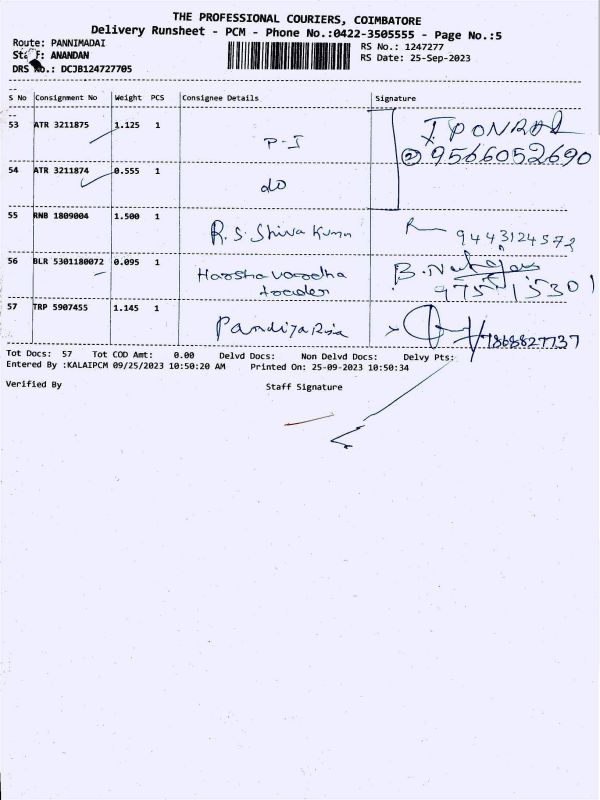 THE PROFESSIONAL COURIERS, COIMBATORE
Delivery Runsheet - PCM - Phone No.:0422-3505555 - Page No.:5
Route: PANNIMADAI
RS No.: 1247277
Staff: ANANDAN
RS Date: 25-Sep-2023
DRS No.: DCJB124727705
S No Consignment No Weight PCS Consignee Details Signature
53 ATR 3211875 1.125 1 P-I I PONRAJ
② 9566052690
54 ATR 3211874 0.555 1 do
55 RNB 1809004 1.500 1 R.S. Shiva Kumar 9443124572
56 BLR 5301180072 0.095 1 Harsha varadha
trader
B.
57 TRP 5907455 1.145 1 Pandiya Raja 7868827737
Tot Docs: 57 Tot COD Amt: 0.00 Delvd Docs: Non Delvd Docs: Delvy Pts:
Entered By :KALAIPCM 09/25/2023 10:50:20 AM Printed On: 25-09-2023 10:50:34
Verified By Staff Signature